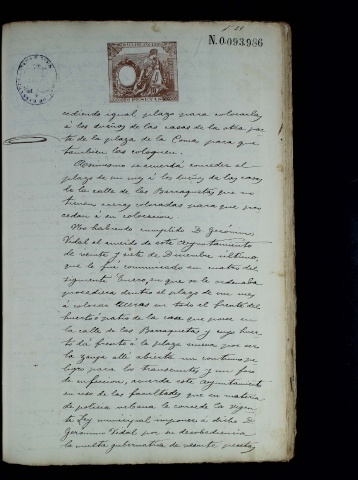 N.0.093.986
cediendo igual plazo para colocarlas
á los dueños de las casas de la otra par
te de la plaza de la Coma para que
tambien las coloquen.
Asimismo se acuerda conceder el
plazo de un mes á los dueños de las casas
de la calle de las Barraquetas que no
tienen aceras colocadas para que pro
cedan á su colocacion.
No habiendo cumplido D. Gerónimo
Vidal el acuerdo de este Ayuntamiento
de veinte y siete de Diciembre último,
que le fué comunicado en cuatro del
siguiente Enero, en que se le ordenaba
procediera dentro el plazo de un mes
á colocar aceras en todo el frente del
huerto ó patio de la casa que posee en
la calle de las Barraquetas y cuyo huer
to dá frente á la plaza nueva por ser
la zanja allí abierta un continuo pe
ligro para los transeuntes y un foco
de infeccion, acuerda este Ayuntamiento
en uso de las facultades que en materia
de policia urbana le concede la vigen
te Ley municipal imponer á dicho D.
Gerónimo Vidal por su desobediencia
la multa gubernativa de veinte pesetas